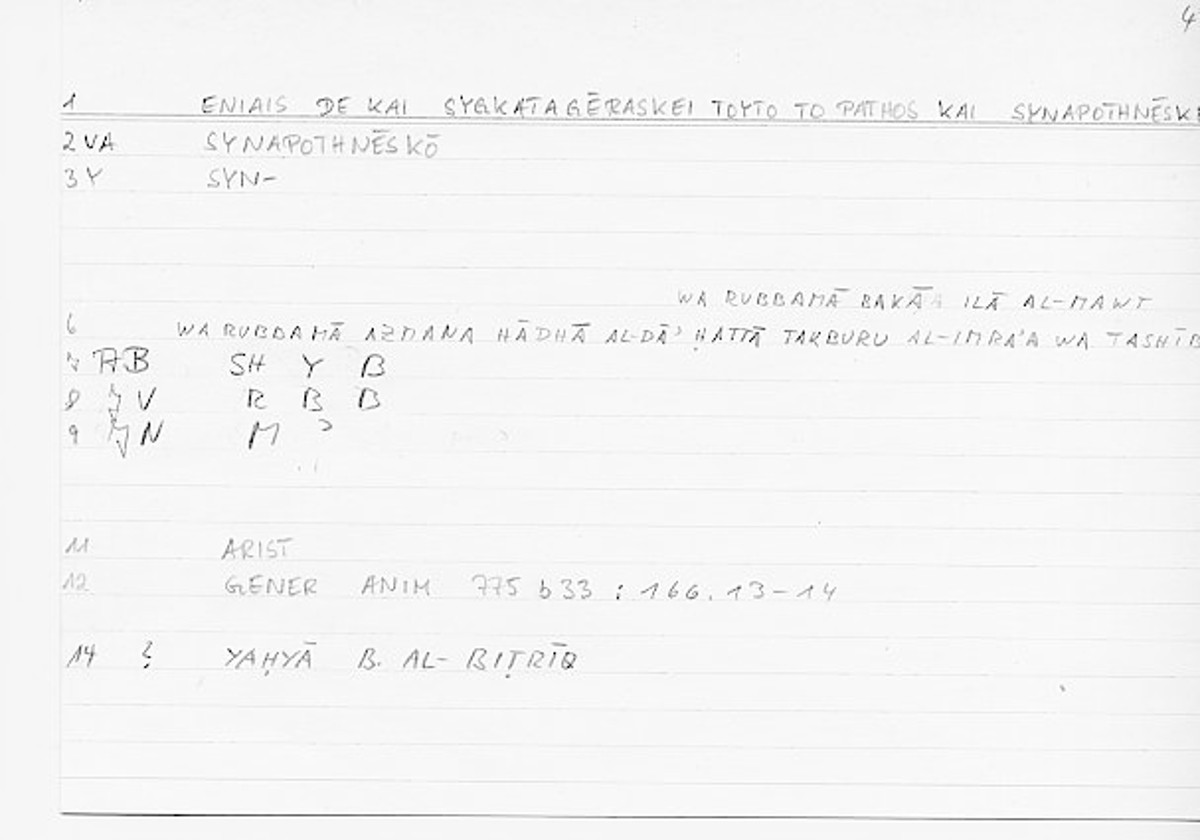 4
1 ENIAIS DE KAI SYGKATAGĒRASKEI TOYTO TO PATHOS KAI SYNAPOTHNĒSKE
2 VA SYNAPOTHNĒSKŌ
3 Y SYN-
WA RUBBAMĀ BAKĀ ILĀ AL-MAWT
6 WA RUBBAMĀ AZMANA HĀDHĀ AL-DĀʾ ḤATTĀ TAKBURU AL-IMRAʾA WA TASHĪB
7 AB SH Y B
8 V R B B
9 N M ʾ
11 ARIST
12 GENER ANIM 775 b 33 : 166. 13-14
14 ? YAḤYĀ B. AL-BIṬRĪQ